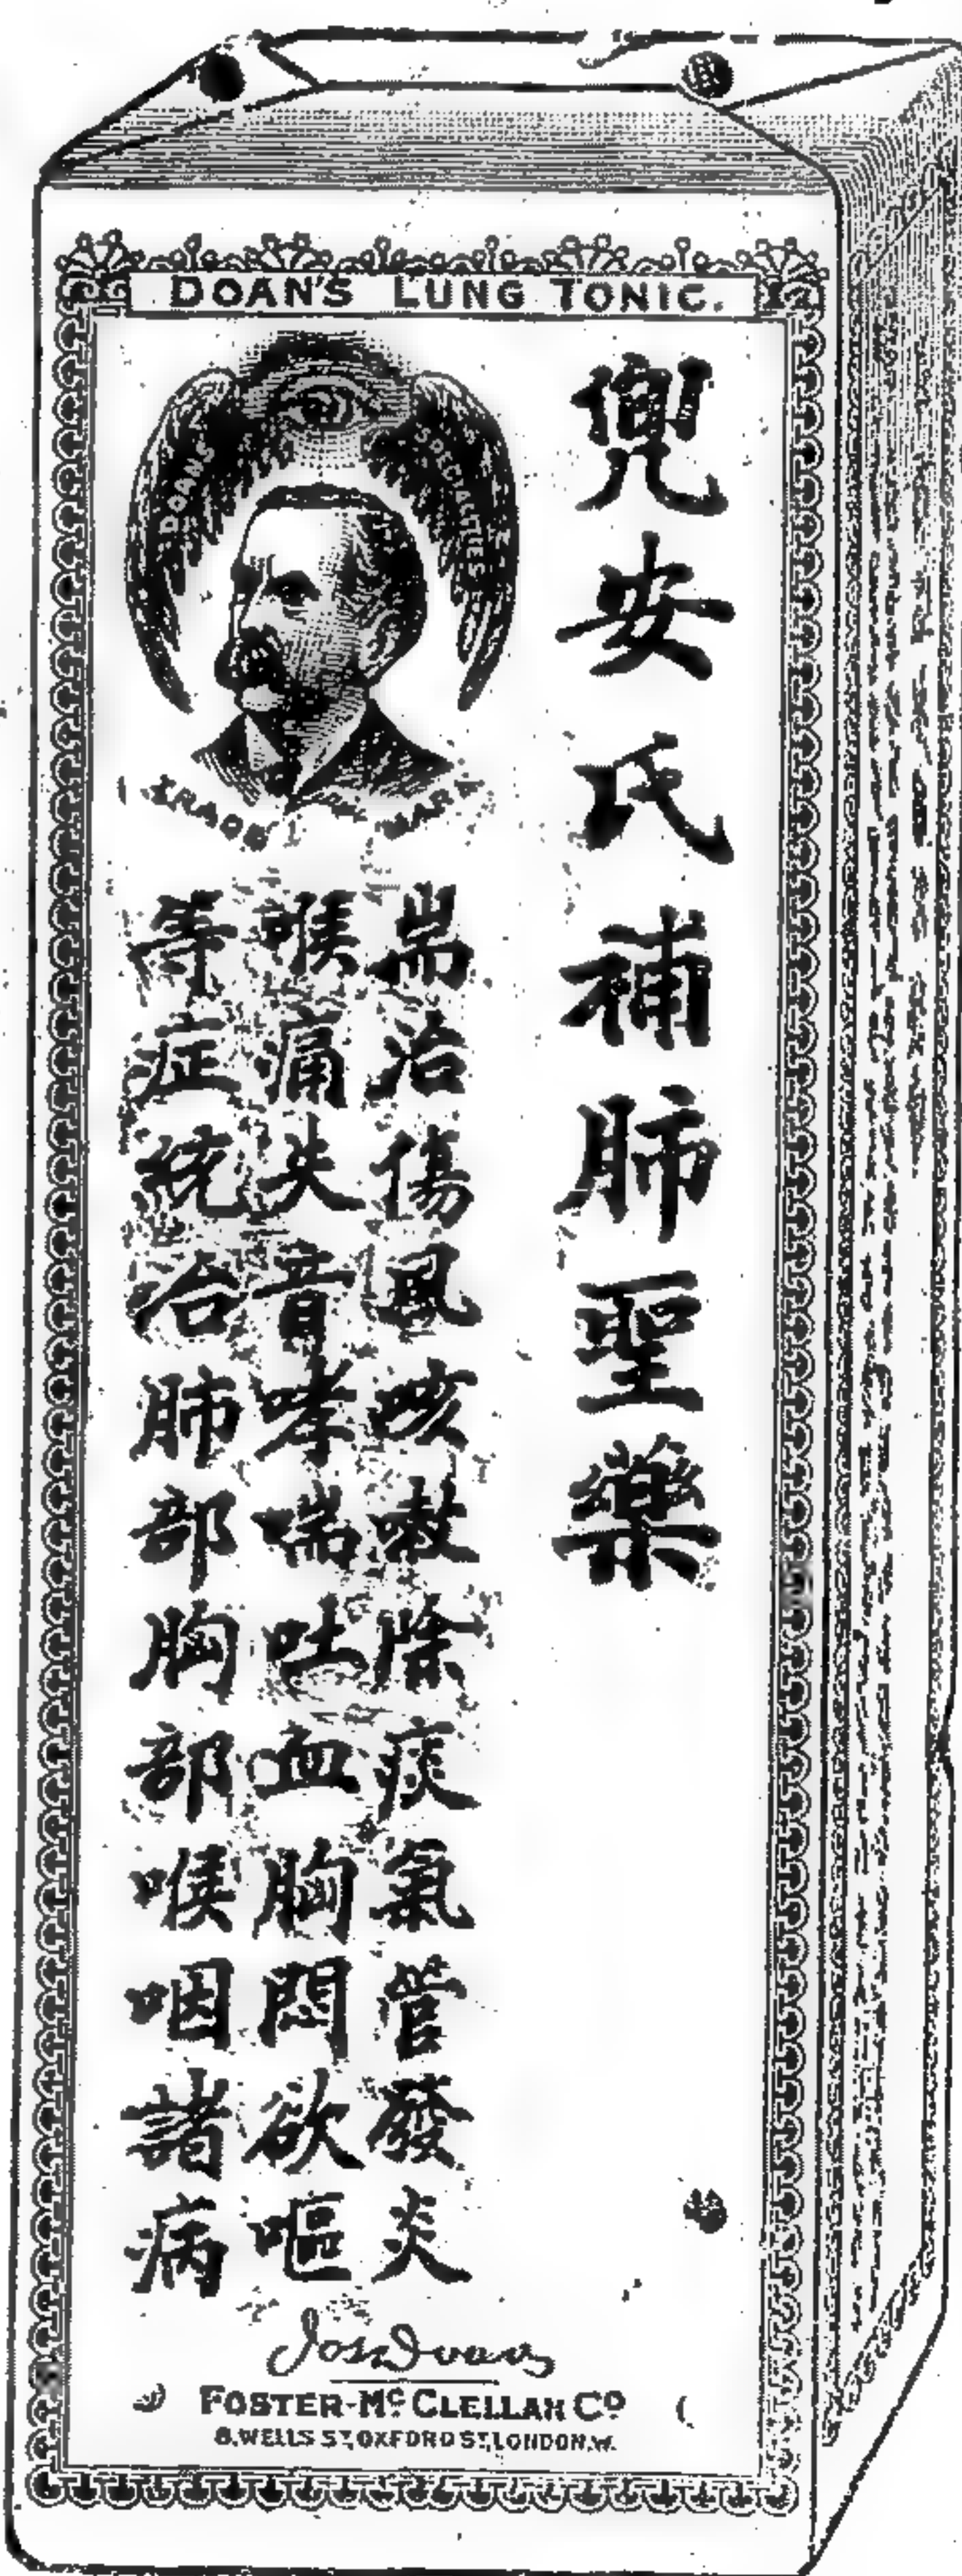 DOAN'S LUNG TONIC.
DOANS SPECIALTIES
TRADE MARK
兜安氏補肺聖藥
耑治傷風咳嗽除痰氣管發炎
喉痛失音哮喘吐血胸悶欲嘔
等症統治肺部胸部喉咽諸病
Jos Doan
FOSTER-MCCLELLAN CO
8, WELLS ST, OXFORD ST, LONDON, W.